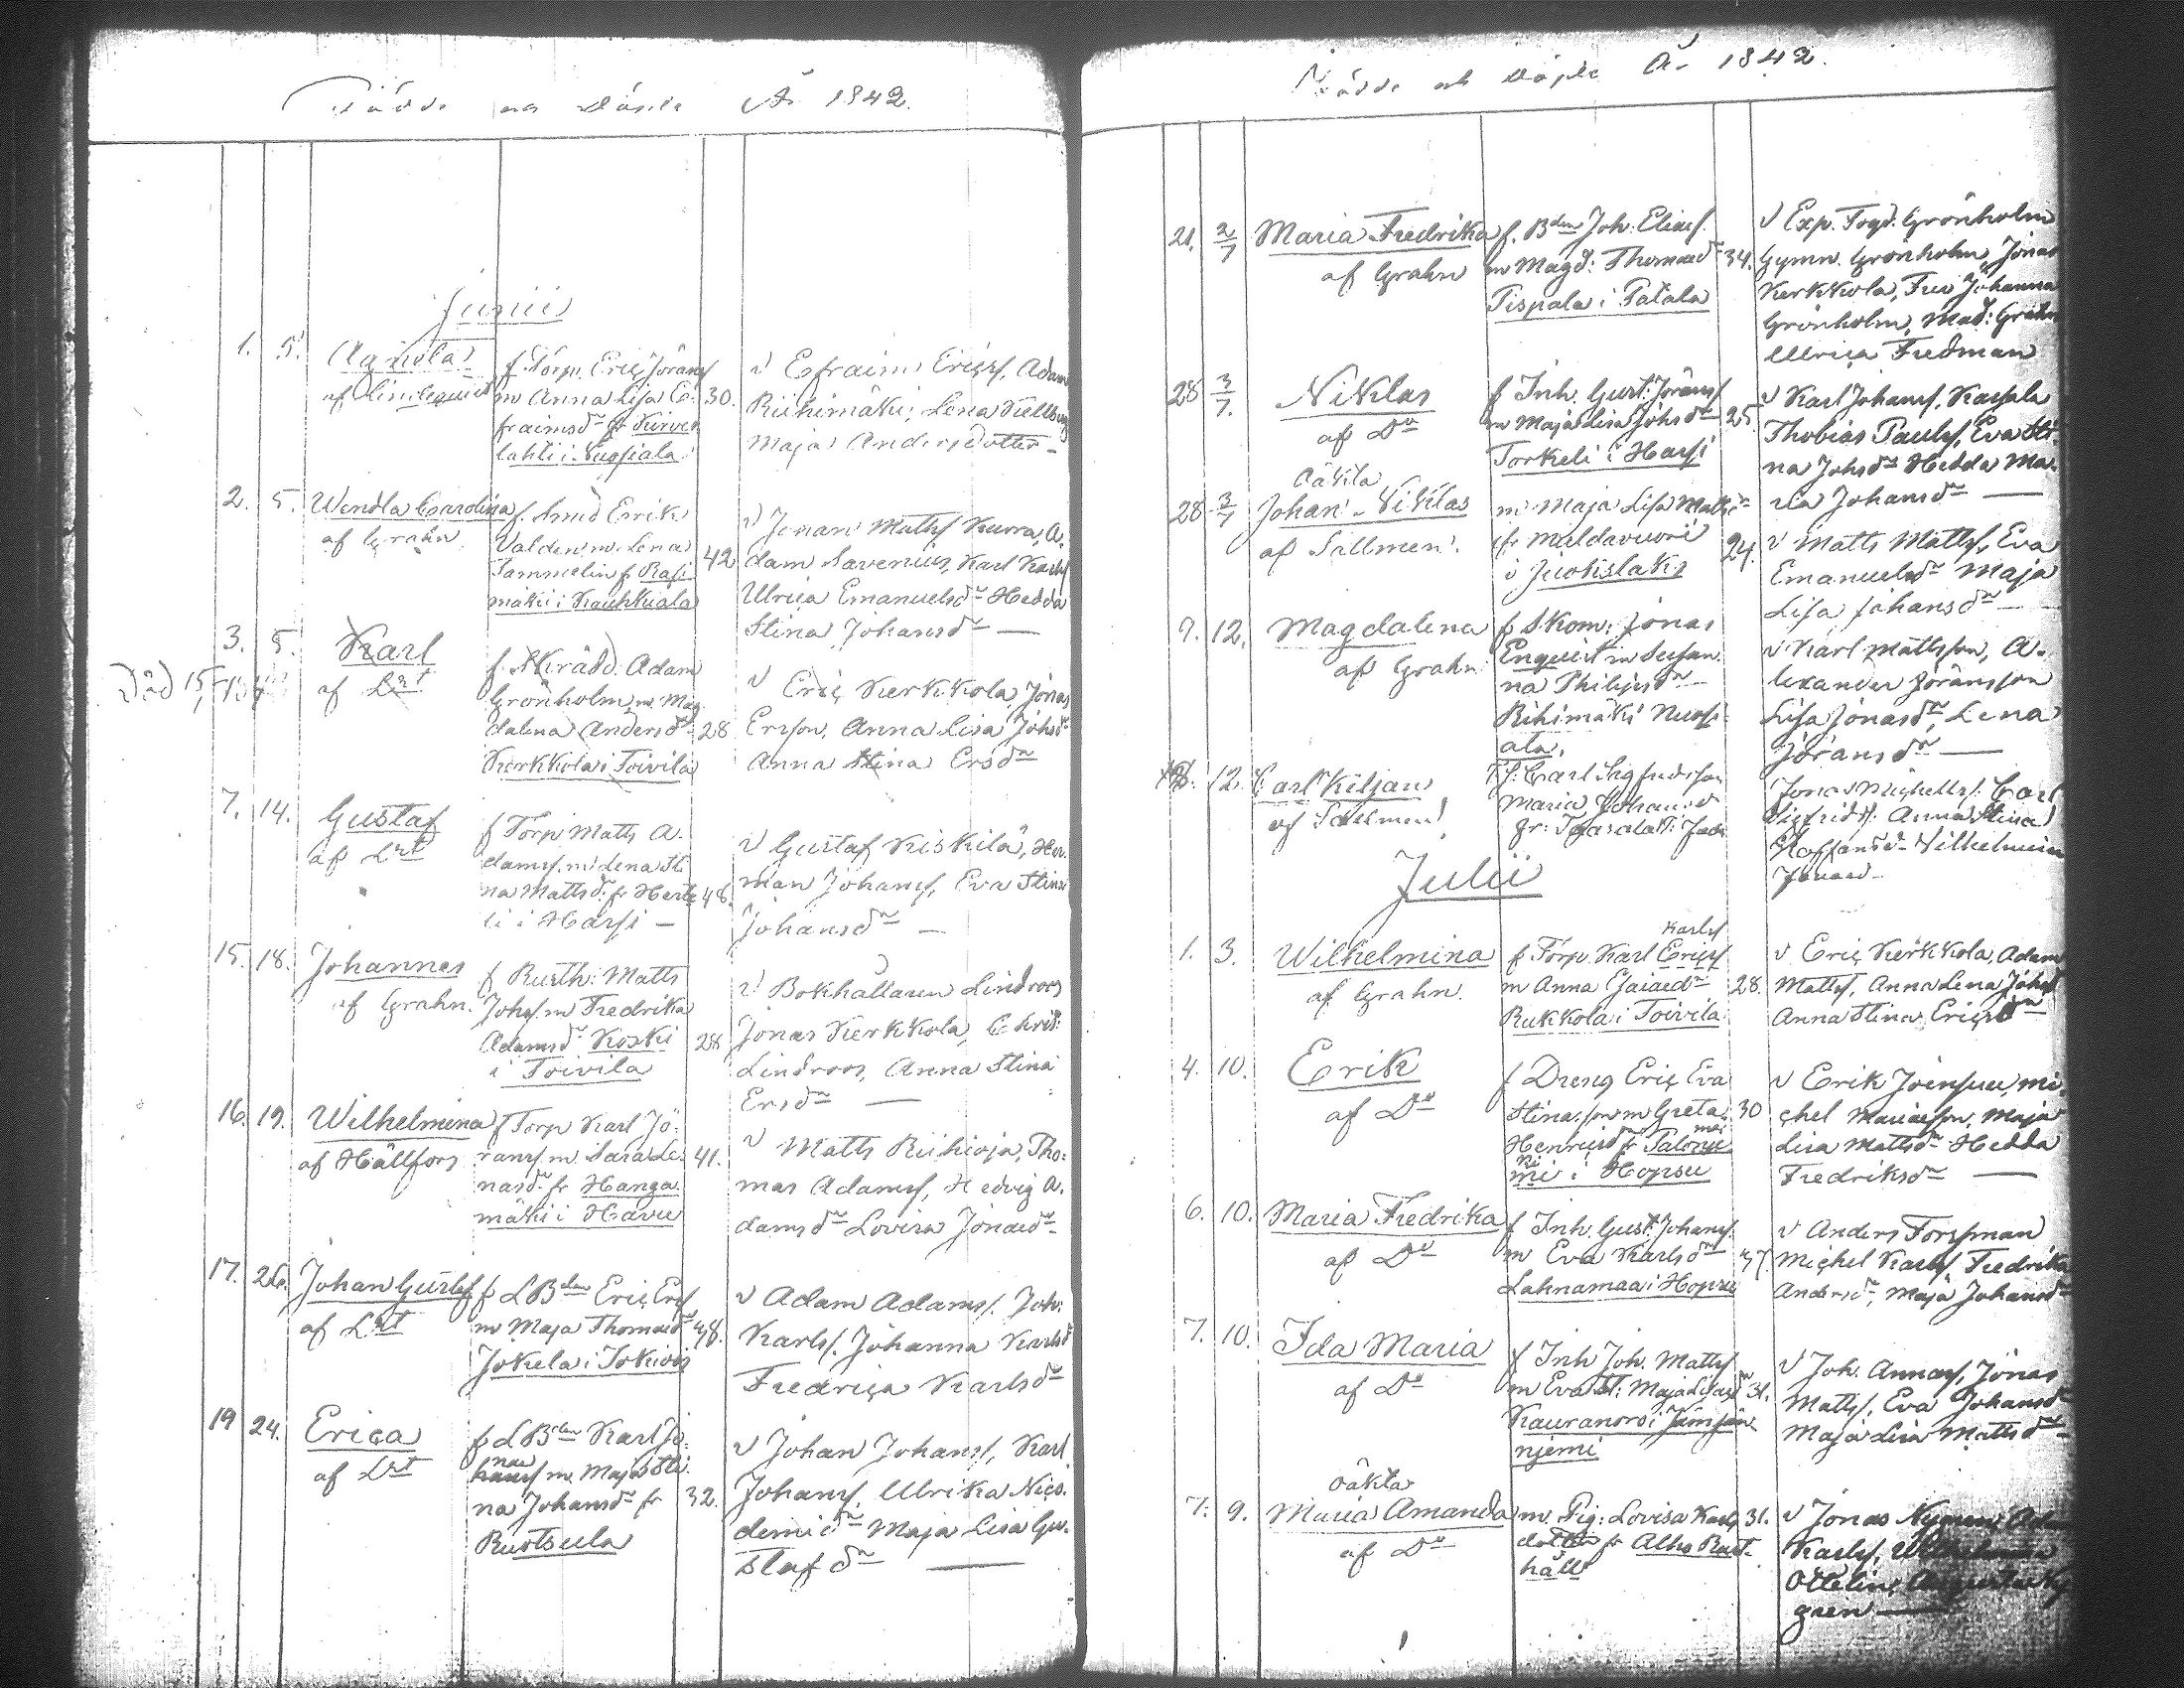 Födde och Döpte År 1842.
Junii
1. 5.
af Lindequist
f. Torp. Eriç Jöransf
m Anna Lisa E- 30.
fraimsdr fr Kirves
lahti i Nuosiala
v Efraim Eriçsf. Adam
Riihimäki, Lena Kellberg
Maja Andersdotter -
2. 5. Wendla Carolina
af Grahn
f. Smed Errik
Valden m. Lena
Tammelin fr Rasi- 42
mäki i Kauhkiala
v Jonan Mattsf Kurra, A.
dam Savenius, Karl Karlsf
Ulrica Emanuelsdr Hedda
Stina Johansdr —
3. 5. Karl
Död 15/7
af Drt
f. Skrädd. Adam
Grönholm m. Mag
dalena Andersdr 28
Kerkkola i Toivila
v Eriç Kerkkola, Jonas
Ersson, Anna Lisa Johsdr
Anna Stina Ersdr
7. 14. Gustaf
af Drt
f Torp Matts A.
damsf. m Lena Sti
na Mattsdr. fr Hertt 48.
li i Harsi —
v Gustaf Kiskilä, Her.
man Johansf, Eva Stina
Johansdr —
15. 18. Johannes
af Grahn.
f Rusth: Matts
Johsf. m Fredrika
Adamsdr Koski 28
i Toivila
v Bokhållaren Lindroos
Jonas Kerkkola, Christ:
Lindroos, Anna Stina
Ersdr —
16. 19. Wilhelmina
af Hällfors
f Torp Karl Jö-
ransf. m. Sara Le 41.
nasdr. fr Hanga
mäki i Havu
v Matts Riihioja, Tho:
mas Adamsf, Hedvig A.
damsdr Lovisa Jonasdr
17. 26. Johan Gustaf
af Drt
f LBden Eriç Ersf
m Maja Thomasdr 48.
Jokela i Jokiois
v Adam Adamsf. Joh:
Karlsf. Johanna Karlsd
Fredriça Karlsdr
19 24. Eriça
af Drt
f LBden Karl Jo-
nae
hansf m. Maja Sti.
na Johansdr fr 32.
Ruotsula
v Johan Johansf, Karl
Johansf. Ulrika Niço.
demidr Maja Lisa Gu-
stafdr —
Födde och Döpte År 1842.
21. 2/7 Maria Fredrika
af Grahn
f. Bden Joh: Eliasf.
m Magd: Thomasdr 34.
Pispala i Patala
v Exp. Fogd. Grönholm
Gymn. Grönholm, Jonas
Kerkkola, Fru Johanna
Grönholm, Mad: Grahn
Ulriça Fredman
28 3/7. Niklas
af Do
f Inh. Gust: Jöransf
m Maja Lisa Johsdr 25
Torkeli i Harsi
v Karl Johansf, Karpela
Thobias Paulsf, Eva Sti-
na Johsdr Hedda Ma-
ria Johansdr —
Oäkta
28 3/7 Johan Niklas
af Sallmen.
m. Maja Lisa Matts
fr Muldavuori 24.
i Juokslaks
v Matts Mattsf, Eva
Emanuelsdr Maja
Lisa Johansdr —
9. 12. Magdalena
af Grahn
f Skom: Jonas
Enquist m Susan
na Philipsdr
Rihimäki Nuosi-
ala.
v Karl Mattsson, A-
lexander Jöransson
Lisa Jonasdr, Lena
Jöransdr —
12. Carl Kiljan
af Salmen
f: Carl Sigfredsson
Maria Johansd
Jonas Michellsf. Carl
Sigfridsf. Anna Stina
Staffansd. Vilhelmina
Jonasd—
Julii
1. 3. Wilhelmina
af Grahn.
Karlsf
f Torp. Karl Eriçsf
m Anna Esaiaedr 28.
Rukkola i Toivila
v Eriç Kerkkola, Adam
Mattsf, Anna Lena Johsf
Anna Stina Eriçsdr
4. 10. Erik
af Do
f Dreng Eriç Eva
Stina. son m Greta 30
Henriksd fr Palonie
mi i Hopsu
v Erik Joensuu, mi-
çhel Mariaeson, Maja
Lisa Mattsdr Hedda
Fredriksdr —
6. 10. Maria Fredrika
af Do
f Inh. Gust: Johansf.
m Eva Karlsdr 47
Lahnamaa i Hopsu
v Anders Forssman
Miçhel Karlsf Fredrika
Andersdr, Maja Johansdr
7. 10. Ida Maria
af Do
f Inh Joh. Mattsf
m Eva St: Maja Lisasdr 31.
Kauranoro i Jämsän
njemi
v Joh. Annaesf, Jonas
Mattsf. Eva Johansdr
Maja Lisa Mattsdr
Oäkta
7. 9. Maria Amanda
af Do
m. Pig: Lovisa Karls 31.
dotter fr Alho Rust-
håll
v Jonas Nygren, Adam
Karlsf, Wilhelmina
Ottelin, Augusta Ny
gren —